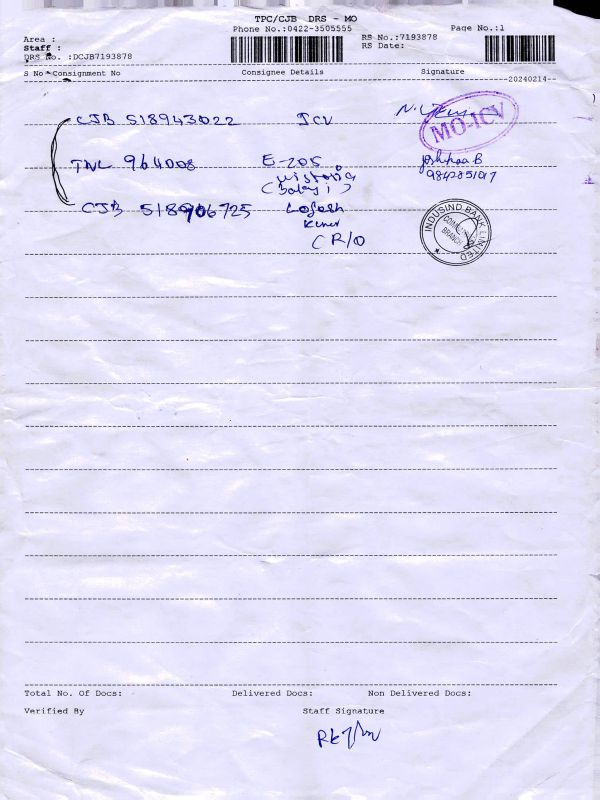 TPC/CJB DRS - MO
Phone No.:0422-3505555 Page No.:1
Area : RS No.:7193878
Staff : RS Date:
DRS No. :DCJB7193878
S No Consignment No Consignee Details Signature
20240214
CJB 518943022 ICV
MO-ICV
TNL 964008 E-205
9842851017
CJB 518906725
CR/O
INDUSIND BANK LIMITED
BRANCH
Total No. Of Docs: Delivered Docs: Non Delivered Docs:
Verified By Staff Signature